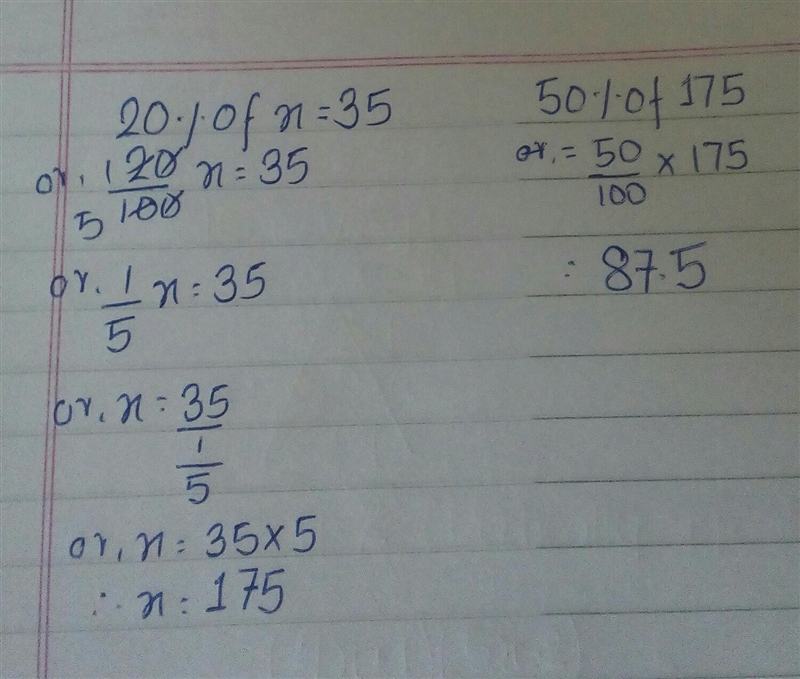 20 % of x = 35
or, 1 20/5 100 x = 35
or, 1/5 x = 35
or, x = 35/(1/5)
or, x = 35 × 5
∴ x = 175
50 % of 175
or, = 50/100 × 175
= 87.5